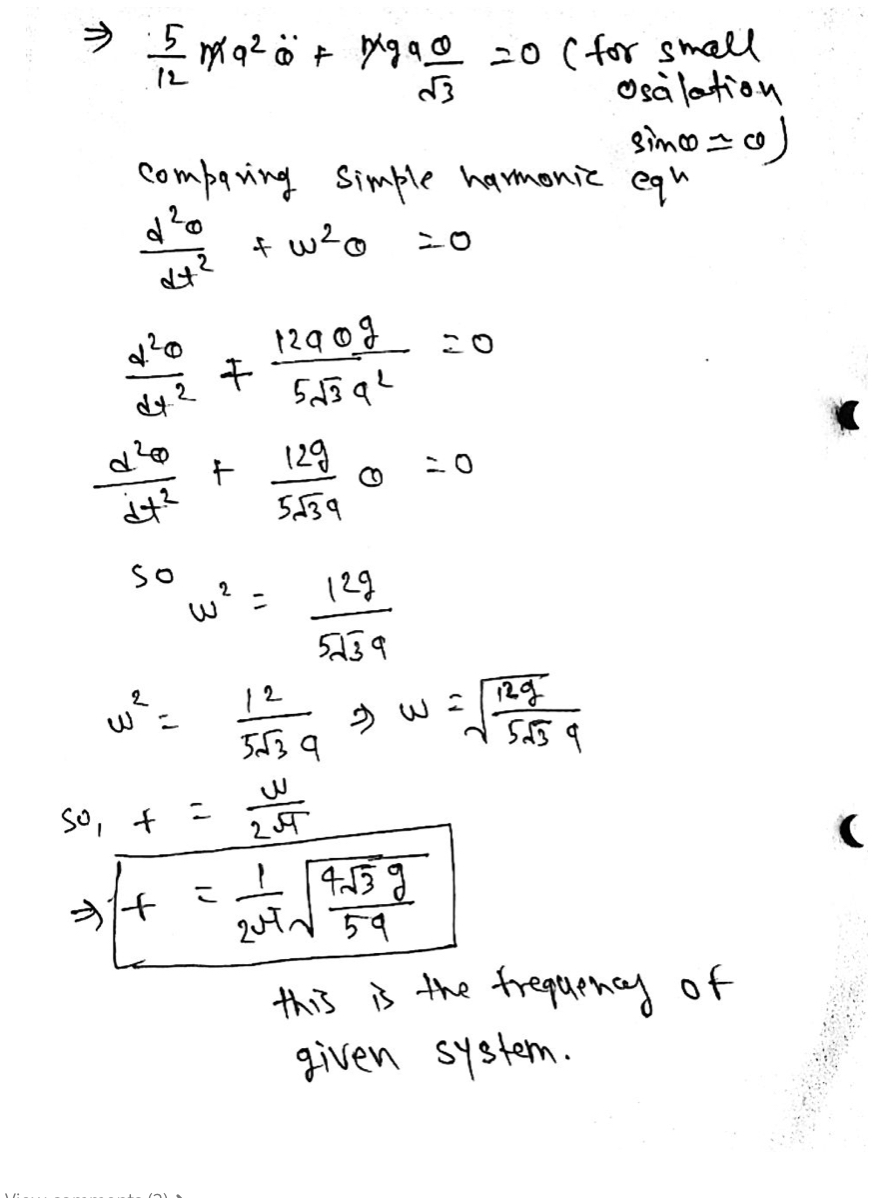 ⇒ 5/12 ma² θ̈ + mga θ/√3 = 0 (for small
osalation
sinθ ≃ θ)
comparing simple harmonic eqn
d²θ/dt² + w²θ = 0
d²θ/dt² + 12aθg/5√3a² = 0
d²θ/dt² + 12g/5√3a θ = 0
so w² = 12g/5√3a
w² = 12/5√3a ⇒ w = √(12g/5√3a)
so, f = w/2π
⇒ f = 1/2π √(4√3g/5a)
this is the frequency of
given system.